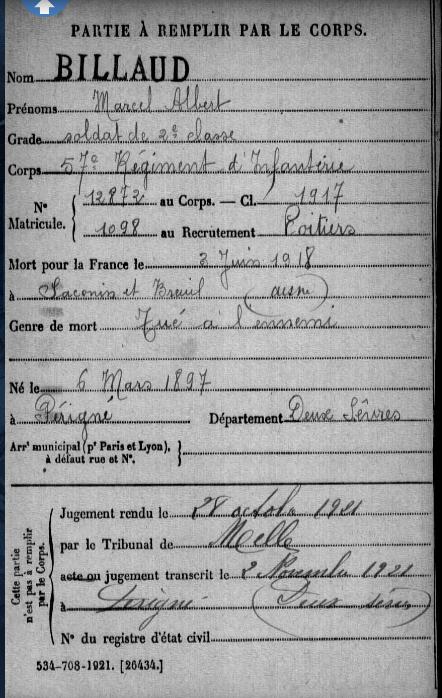 PARTIE À REMPLIR PAR LE CORPS.
Nom BILLAUD
Prénoms Marcel Albert
Grade soldat de 2e classe
Corps 57e Régiment d'Infanterie
N° Matricule. { 12872 au Corps. — Cl. 1917
1098 au Recrutement Poitiers
Mort pour la France le 2 Juin 1918
à Saconin et Breuil (aisne)
Genre de mort Tué à l'ennemi
Né le 6 Mars 1897
à Périgné Département Deux Sèvres
Arrt municipal (pr Paris et Lyon), }
à défaut rue et N°.
Cette partie n'est pas à remplir par le Corps.
Jugement rendu le 28 octobre 1921
par le Tribunal de Melle
acte ou jugement transcrit le 2 Novembre 1921
à Périgné (Deux Sèvres)
N° du registre d'état civil
534-708-1921. [26434.]